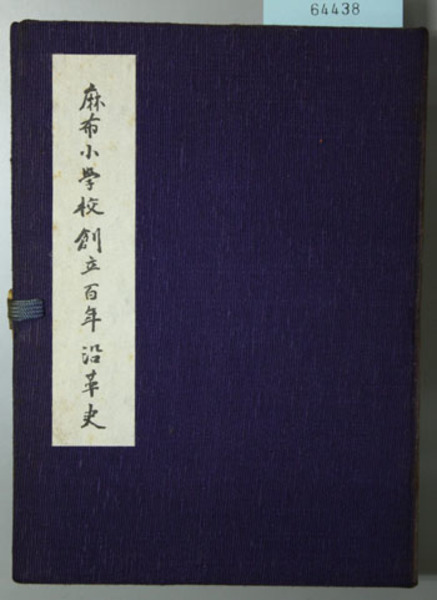 64438
麻布小學校創立百年沿革史